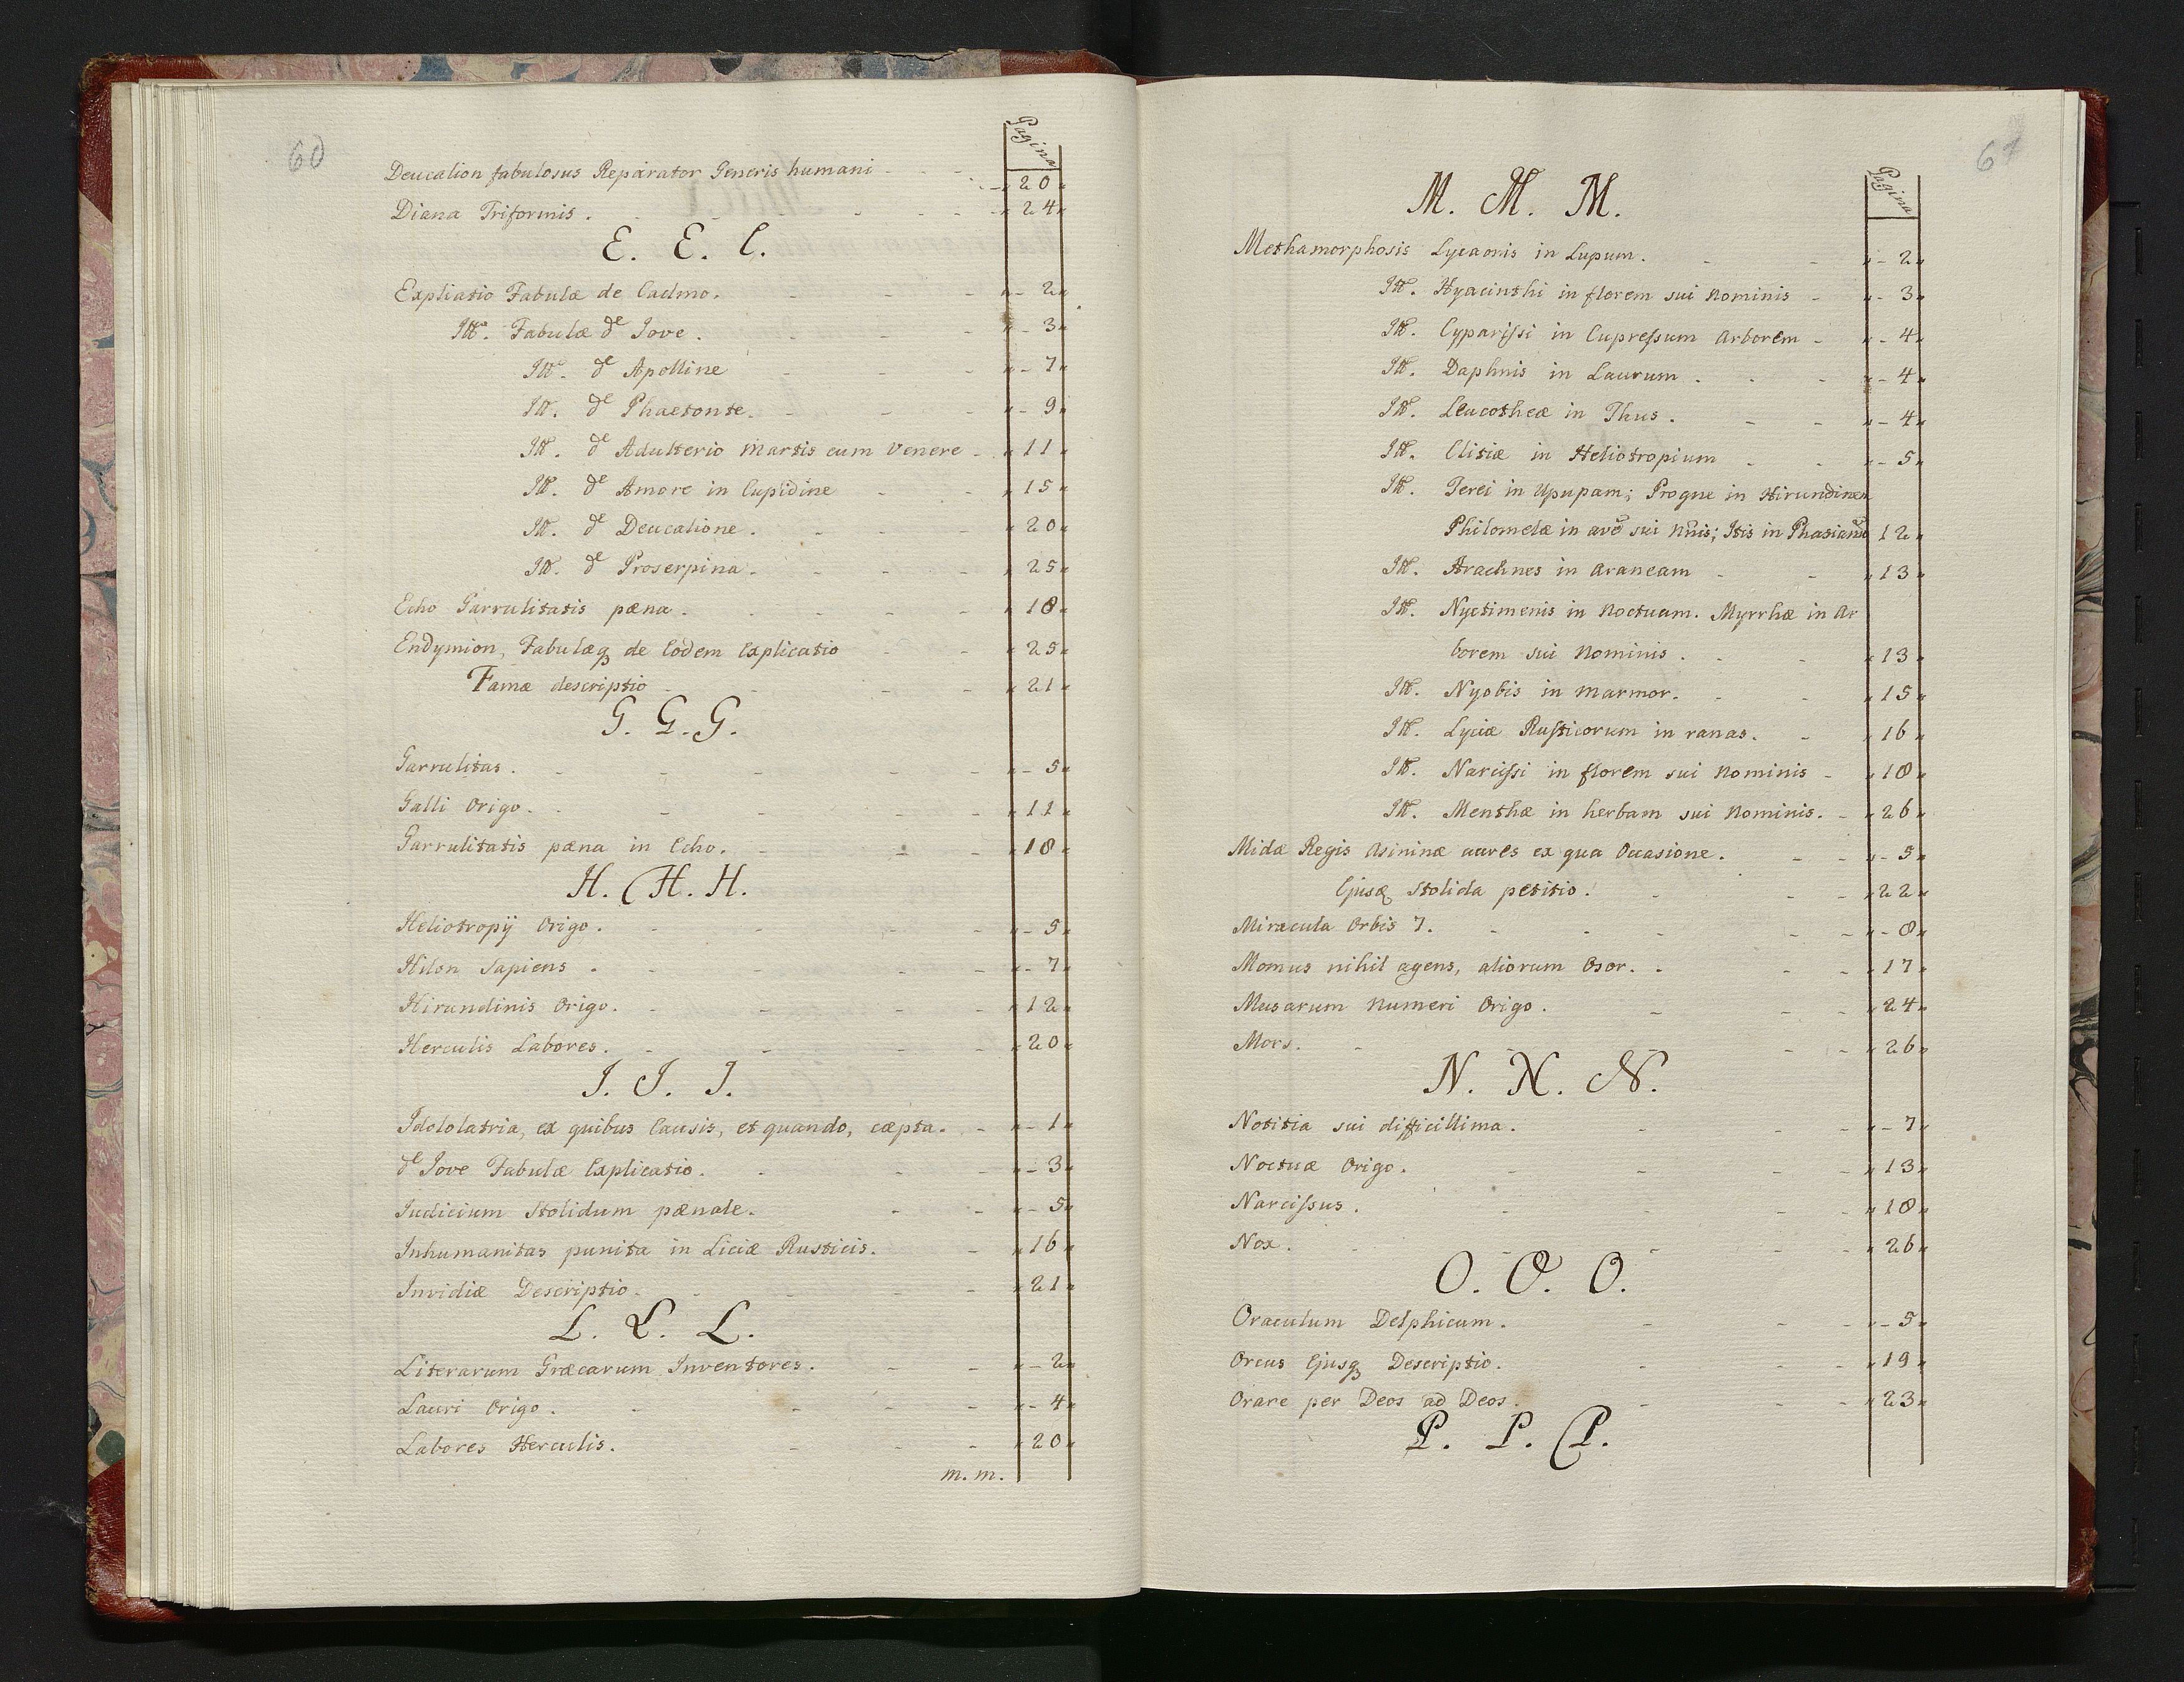 60
Pagina
Deucalion fabulosus Reparator Generis humani - - 20
Diana Triformis. - - 24
E. E. E.
Expliatio Fabulæ de Cadmo. - - 2
Itẽ. Fabulæ de Iove. - - 3
Itẽ. de Apolline - - 7
Itẽ. de Phaetonte. - - 9
Itẽ. de Adulterio Martis cum Venere - 11
Itẽ. de Amore in Cupidine - - 15
Itẽ. de Deucalione. - - 20
Itẽ. de Proserpina. - - 25
Echo Garrulitatis pæna. - - 18
Endymion, Fabulæq de Eodem Explicatio - - 25
Famæ descriptio - - 21
G. G. G.
Garrulitas. - - 5
Galli Origo. - - 11
Garrulitatis pæna in Echo. - - 18
H. H. H.
Heliotropij Origo. - - 5
Hilon Sapiens. - - 7
Hirundinis Origo. - - 12
Herculis Labores. - - 20
I. I. I.
Idololatria, ex quibus Causis, et quando, cæpta. - - 1
de Iove Fabulæ Explicatio. - - 3
Iudicium Stolidum pænale. - - 5
Inhumanitas punita in Liciæ Rusticis. - 16
Invidiæ Descriptio. - - 21
L. L. L.
Literarum Græcarum Inventores. - - 2
Lauri Origo. - - 4
Labores Herculis. - - 20
m. m.
61
Pagina
M. M. M.
Methamorphosis Lycaonis in Lupum. - - 2
Itẽ. Hyacinthi in florem sui Nominis - - 3
Itẽ. Cyparissi in Cupressum Arborem - - 4
Itẽ. Daphnis in Laurum. - - 4
Itẽ. Leucotheæ in Thus. - - 4
Itẽ. Clitiæ in Heliotropium - - 5
Itẽ. Terei in Upupam; Progne in Hirundinem
Philomelæ in avẽ sui Nn̄is; Itis in Phasianũ 12
Itẽ. Arachnes in Araneam - - 13
Itẽ. Nyctimenis in Noctuam. Myrrhæ in Ar
borem sui Nominis. - - 13
Itẽ. Nyobis in Marmor. - - 15
Itẽ. Lyciæ Rusticorum in ranas. - 16
Itẽ. Narcissi in florem sui Nominis - 18
Itẽ. Menthæ in herbam sui Nominis. - 26
Midæ Regis Asininæ aures ex qua Occasione. - - 5
Ejusq Stolida petitio. - - 22
Miracula Orbis 7. - - 8
Momus nihil agens, aliorum Osor. - - 17
Musarum Numeri Origo. - - 24
Mors. - - 26
N. N. N.
Notitia sui difficillima. - - 7
Noctuæ Origo. - - 13
Narcissus. - - 18
Nox. - - 26
O. O. O.
Oraculum Delphicum. - - 5
Orcus Ejusq Descriptio. - - 19
Orare per Deos ad Deos. - - 23
P. P. P.